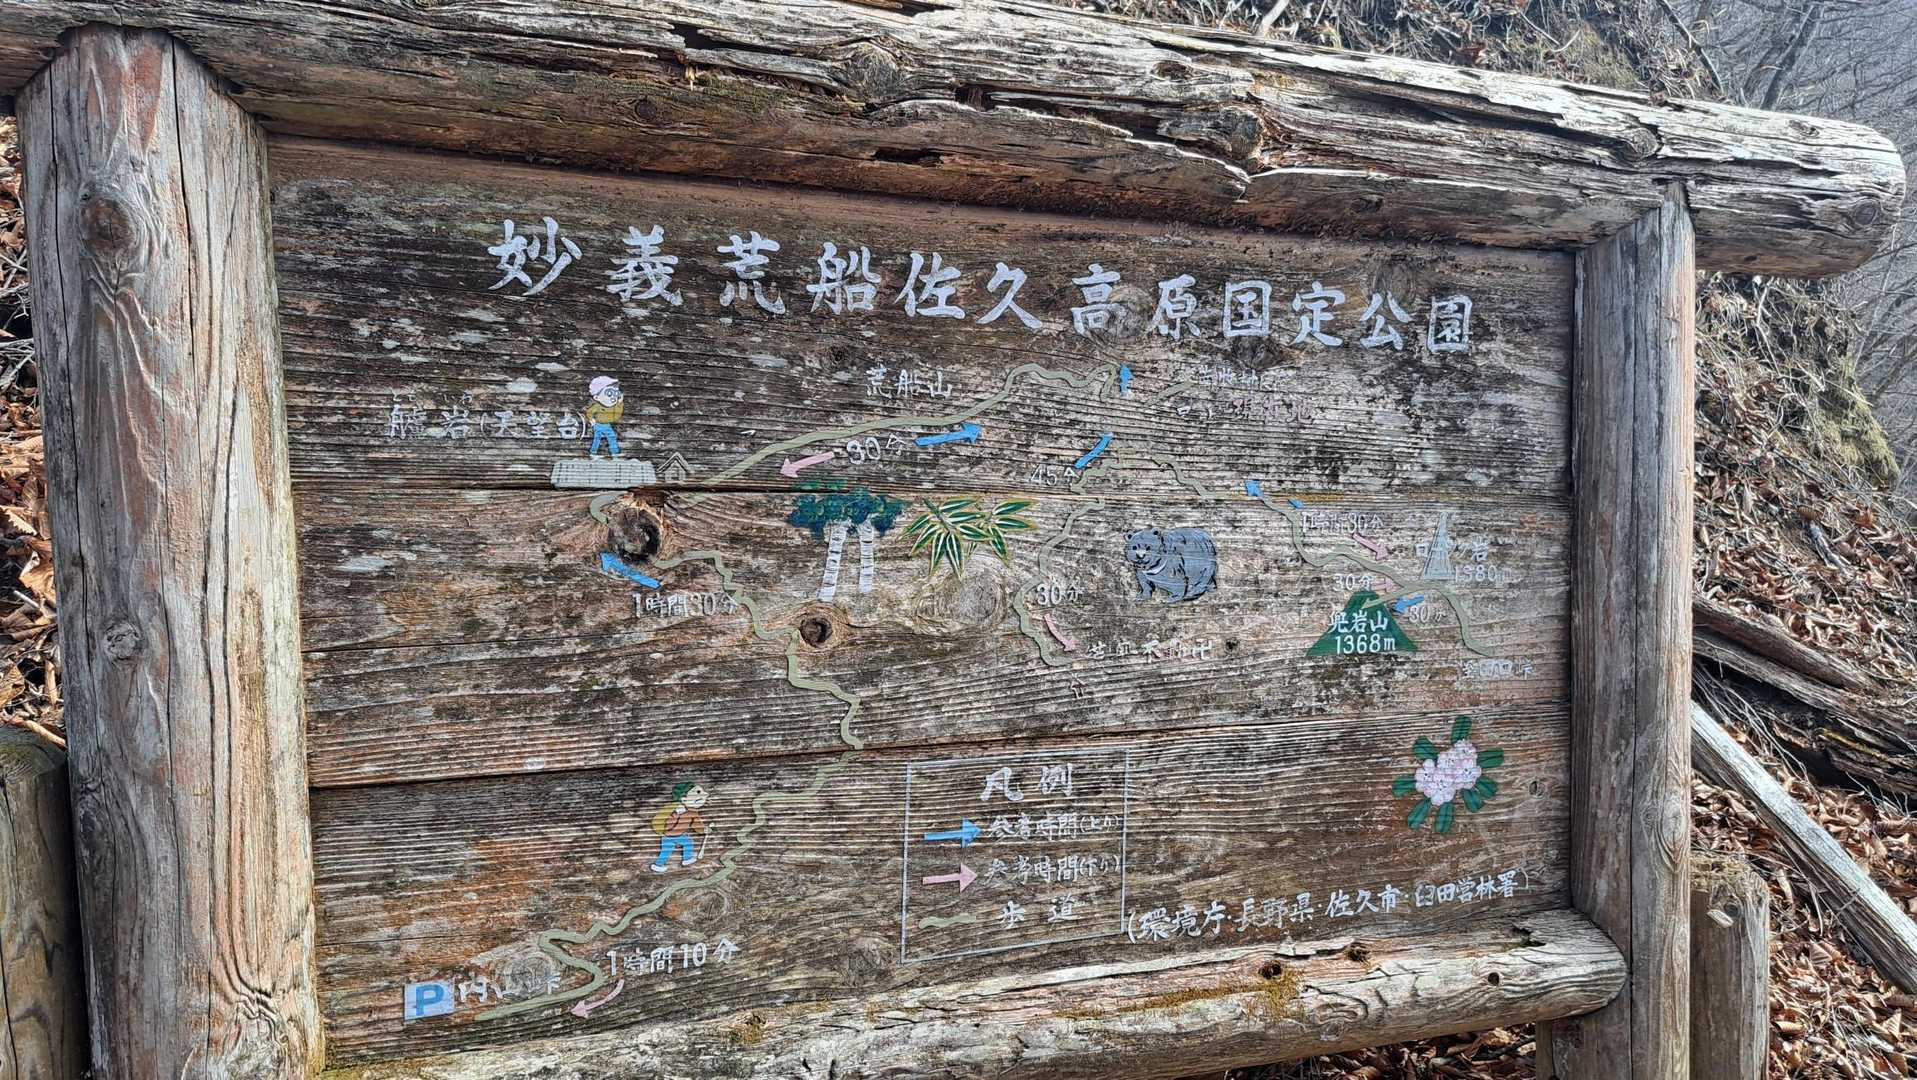 妙義荒船佐久高原国定公園
荒船山
艫岩(天望台)
30分
45分
1時間30分
1時間30分
30分
ローソク岩
1380m
30分
30分
兜岩山
1368m
凡例
参考時間(上り)
参考時間(下り)
歩道
(環境庁・長野県・佐久市・臼田営林署)
1時間10分
P 内山峠